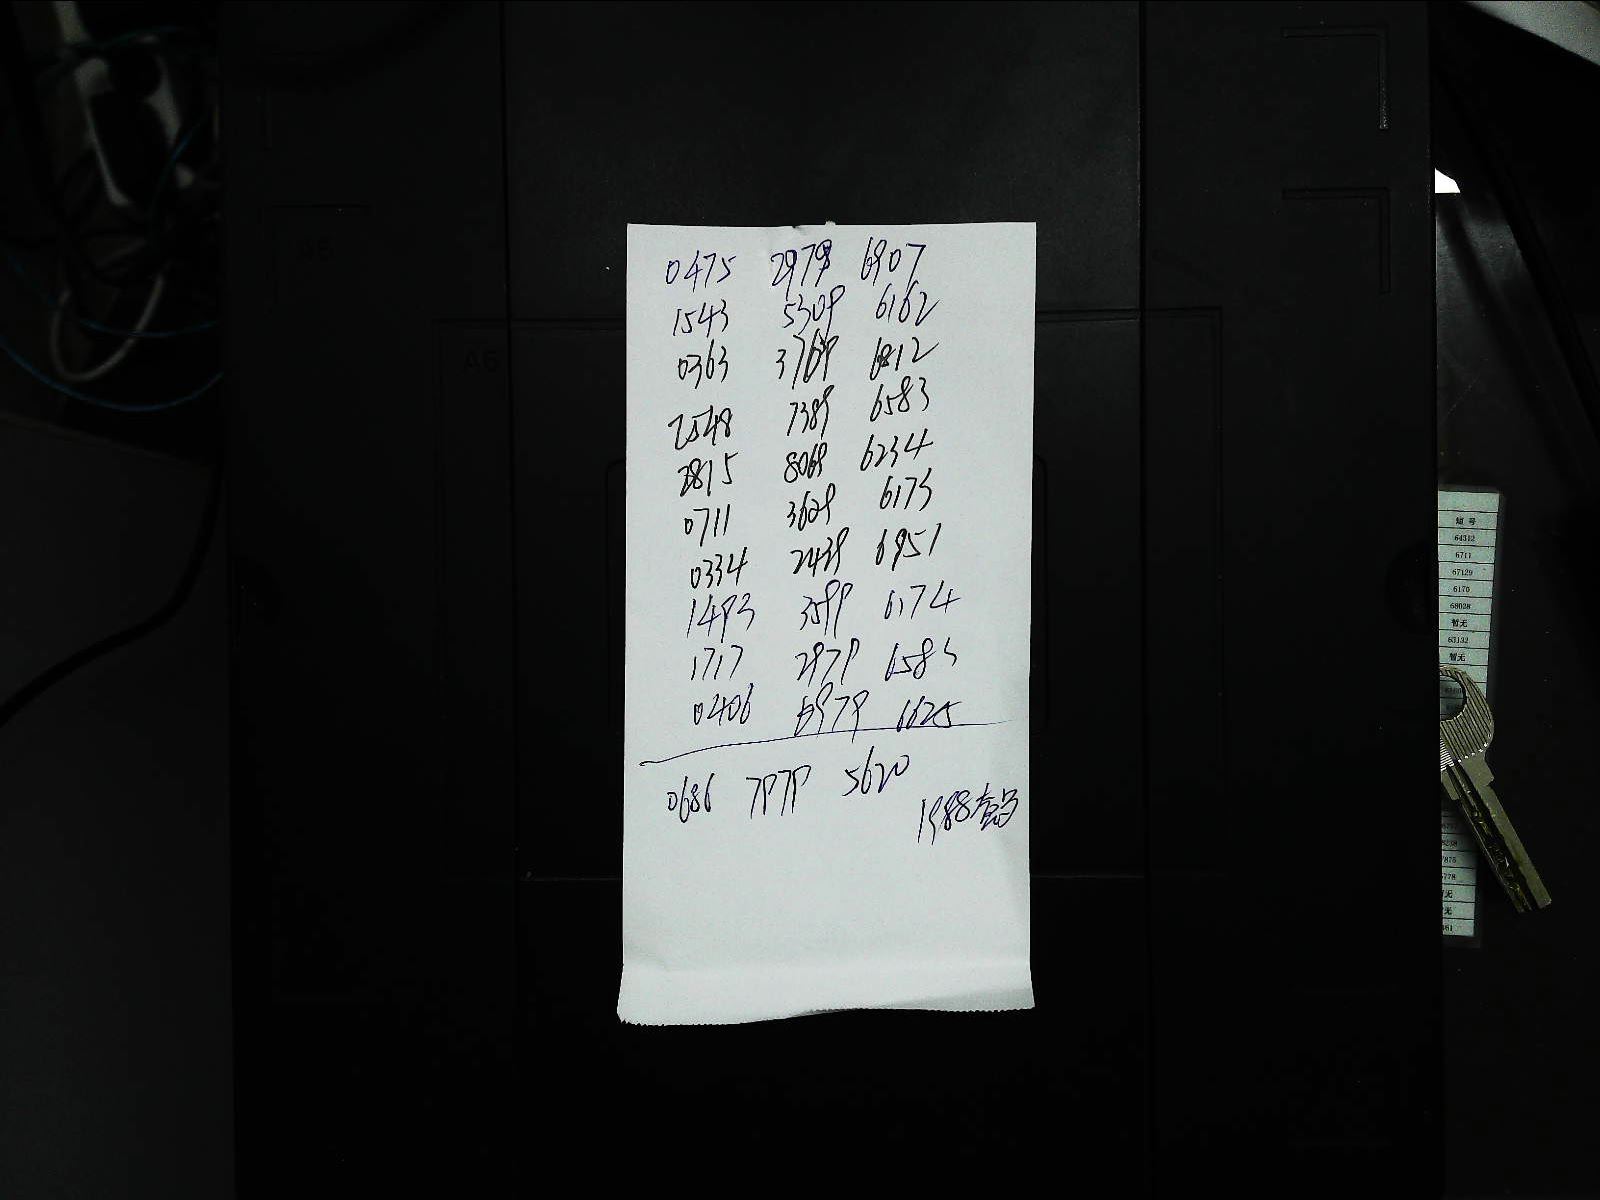 0475 2979 6907
1543 5309 6162
0363 3769 6812
2548 7389 6583
2815 8069 6234
0711 3629 6173
0334 2439 6951
1493 3599 6174
1717 2979 6583
0406 6979 6625
0686 7979 5620
1988查号
A6
短号
64312
6711
67129
6170
68028
暂无
63132
暂无